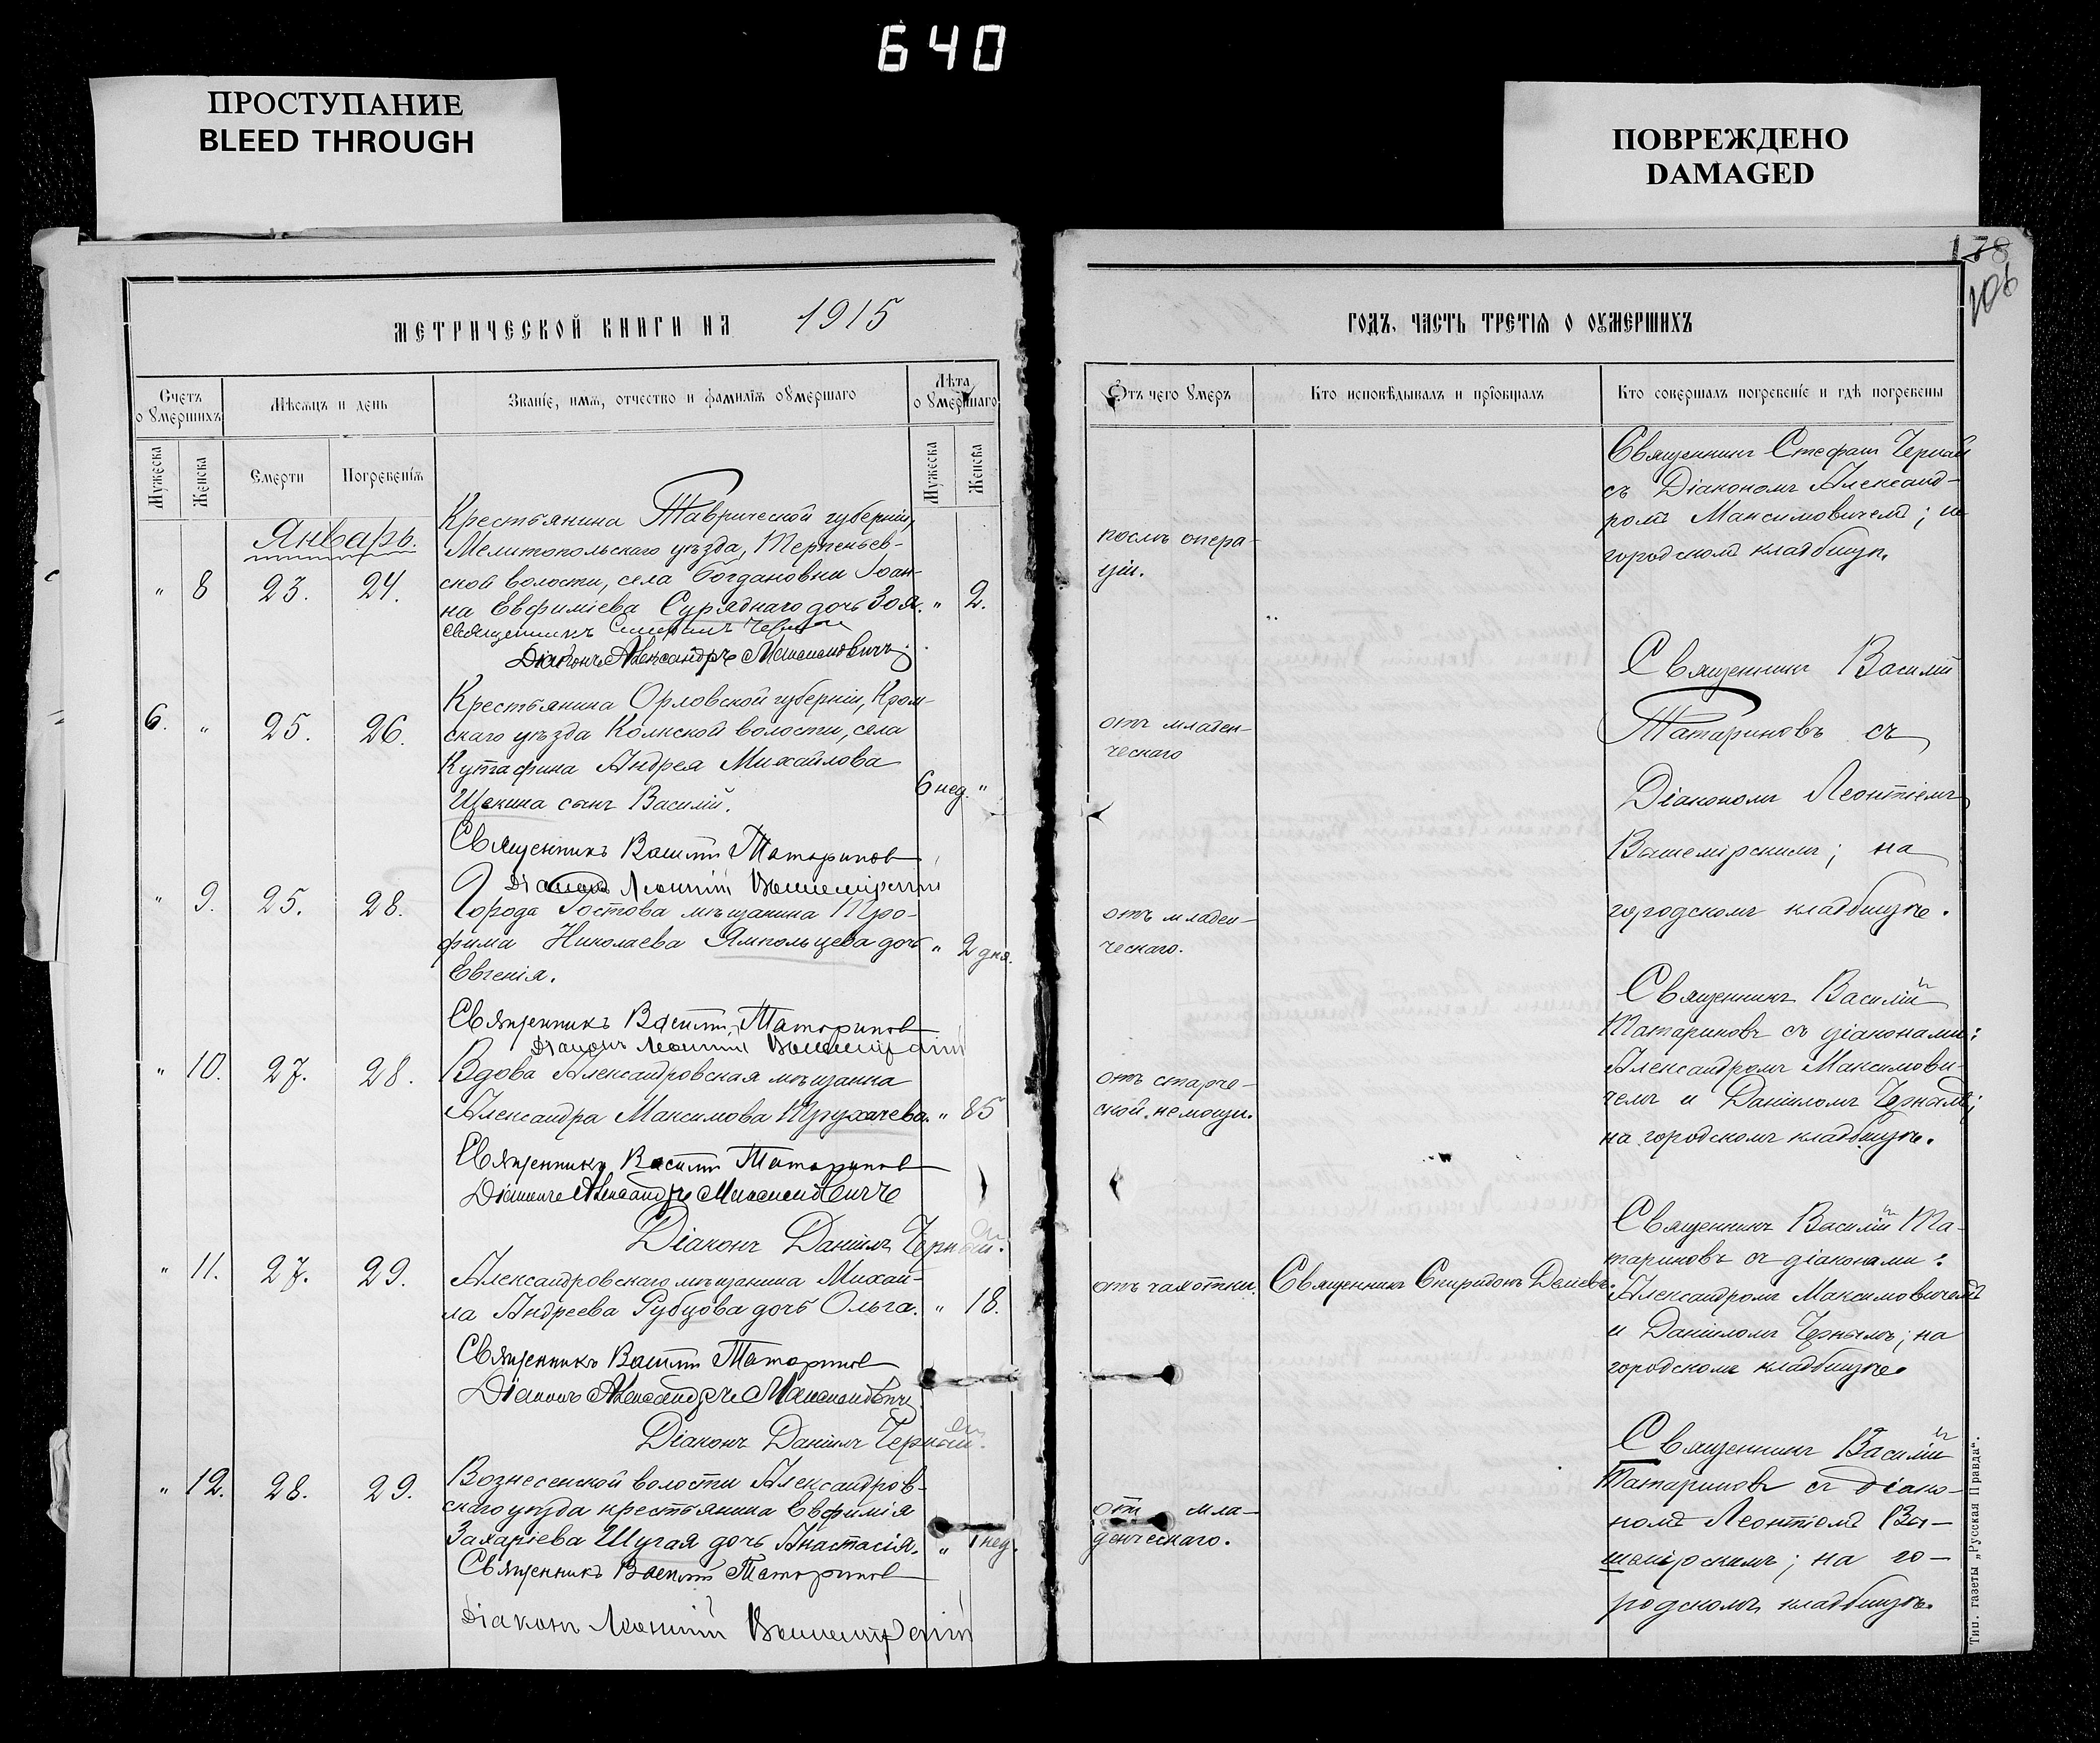 640
ПРОСТУПАНИЕ
BLEED THROUGH
ПОВРЕЖДЕНО
DAMAGED
178
106
МЕТРИЧЕСКОЙ КНИГИ НА 1915
ГОДЪ, ЧАСТЬ ТРЕТІЯ О ОУМЕРШИХЪ
Счетъ о ѹмершихъ
Мѣсяцъ и день
Званіе, имя, отчество и фамилія оумершаго
Лѣта оумершаго
Мужеска
Женска
Смерти
Погребенія
Мужеска
Женска
Отъ чего умеръ
Кто исповѣдывалъ и пріобщалъ
Кто совершалъ погребеніе и гдѣ погребены
Январь.
" 8 23. 24.
Крестьянина Таврической губерніи,
Мелитопольскаго уѣзда, Терпеньев-
ской волости, села Богдановки Іоан-
на Евфиміева Суряднаго дочь Зоя. " 2.
Священникъ Стефанъ Черный
Діаконъ Александръ Максимовичъ.
послѣ опера-
ціи.
Священникъ Стефанъ Черный
съ Діакономъ Александ-
ромъ Максимовичемъ; на
городскомъ кладбищѣ.
6. " 25. 26.
Крестьянина Орловской губерніи, Кром-
скаго уѣзда волости, села
Кутафина Андрея Михайлова
Щекина сынъ Василій. 6 нед. "
Священникъ Василій Татариновъ
Діаконъ Леонтій Вышемірскій
отъ младен-
ческаго
Священникъ Василій
Татариновъ съ
Діакономъ Леонтіемъ
Вышемірскимъ; на
городскомъ кладбищѣ.
" 9. 25. 28.
Города Ростова мѣщанина Тро-
фима Николаева Ямпольцева дочь " 2 дня.
Евгенія.
Священникъ Василій Татариновъ
Діаконъ Леонтій Вышемірскій
отъ младен-
ческаго.
Священникъ Василій
Татариновъ съ діаконами:
Александромъ Максимови-
чемъ и Даніиломъ Чернымъ;
на городскомъ кладбищѣ.
" 10. 27. 28.
Вдова Александровская мѣщанка
Александра Максимова Трухачева. " 85
Священникъ Василій Татариновъ
Діаконъ Александръ Максимовичъ
Діаконъ Даніилъ Черный.
отъ старче-
ской немощи.
Священникъ Василій Та-
тариновъ съ діаконами:
Александромъ Максимовичемъ
и Даніиломъ Чернымъ; на
городскомъ кладбищѣ.
" 11. 27. 29.
Александровскаго мѣщанина Михаи-
ла Андреева Рубцова дочь Ольга. " 18.
Священникъ Василій Татариновъ
Діаконъ Александръ Максимовичъ
Діаконъ Даніилъ Черный.
отъ чахотки.
Священникъ Спиридонъ
" 12. 28. 29.
Вознесенской волости Александров-
скаго уѣзда крестьянина Евфимія
Захаріева Шугая дочь Анастасія. " 1 нед.
Священникъ Василій Татариновъ
Діаконъ Леонтій Вышемірскій
отъ мла-
денческаго.
Священникъ Василій
Татариновъ съ діако-
номъ Леонтіемъ Вы-
шемірскимъ; на го-
родскомъ кладбищѣ.
Тип. газеты „Русская Правда".